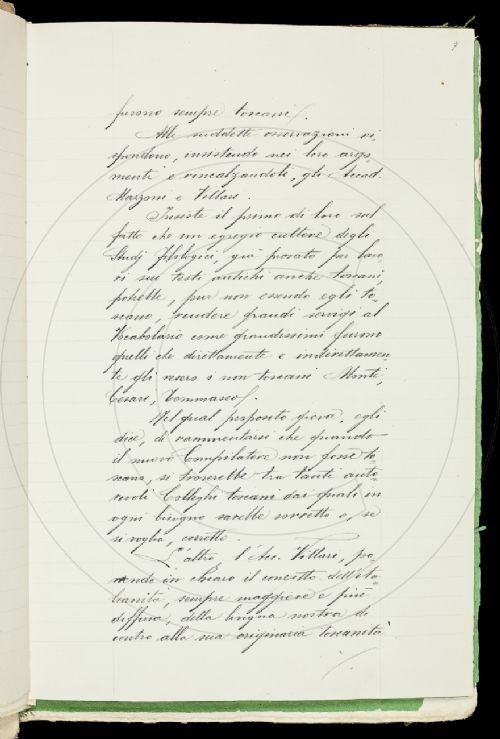 9
furono sempre toscani.
Alle suddette osservazioni ri-
spondono, insistendo nei loro argo-
menti e rincalzandoli, gli Accad.
Marzoni e Villari.
Insiste il primo di loro sul
fatto che un egregio cultore degli
Studj filologici, già provato per lavo-
ri sui testi antichi anche toscani,
potrebbe, pur non essendo egli to-
scano, rendere grandi servigi al
Vocabolario come grandissimi furono
quelli che direttamente e indirettamen-
te gli resero i non toscani Monti,
Cesari, Tommaseo.
Nel qual proposito giova, egli
dice, di rammentarsi che quando
il nuovo Compilatore non fosse to-
scano, si troverebbe tra tanti auto-
revoli Colleghi toscani dai quali in
ogni bisogno sarebbe sorretto e, se
si voglia, corretto.
L'altro, l'Acc. Villari, po-
nendo in chiaro il concetto dell'ita-
lianità, sempre maggiore e più
diffusa, della lingua nostra di
contro alla sua originaria toscanità